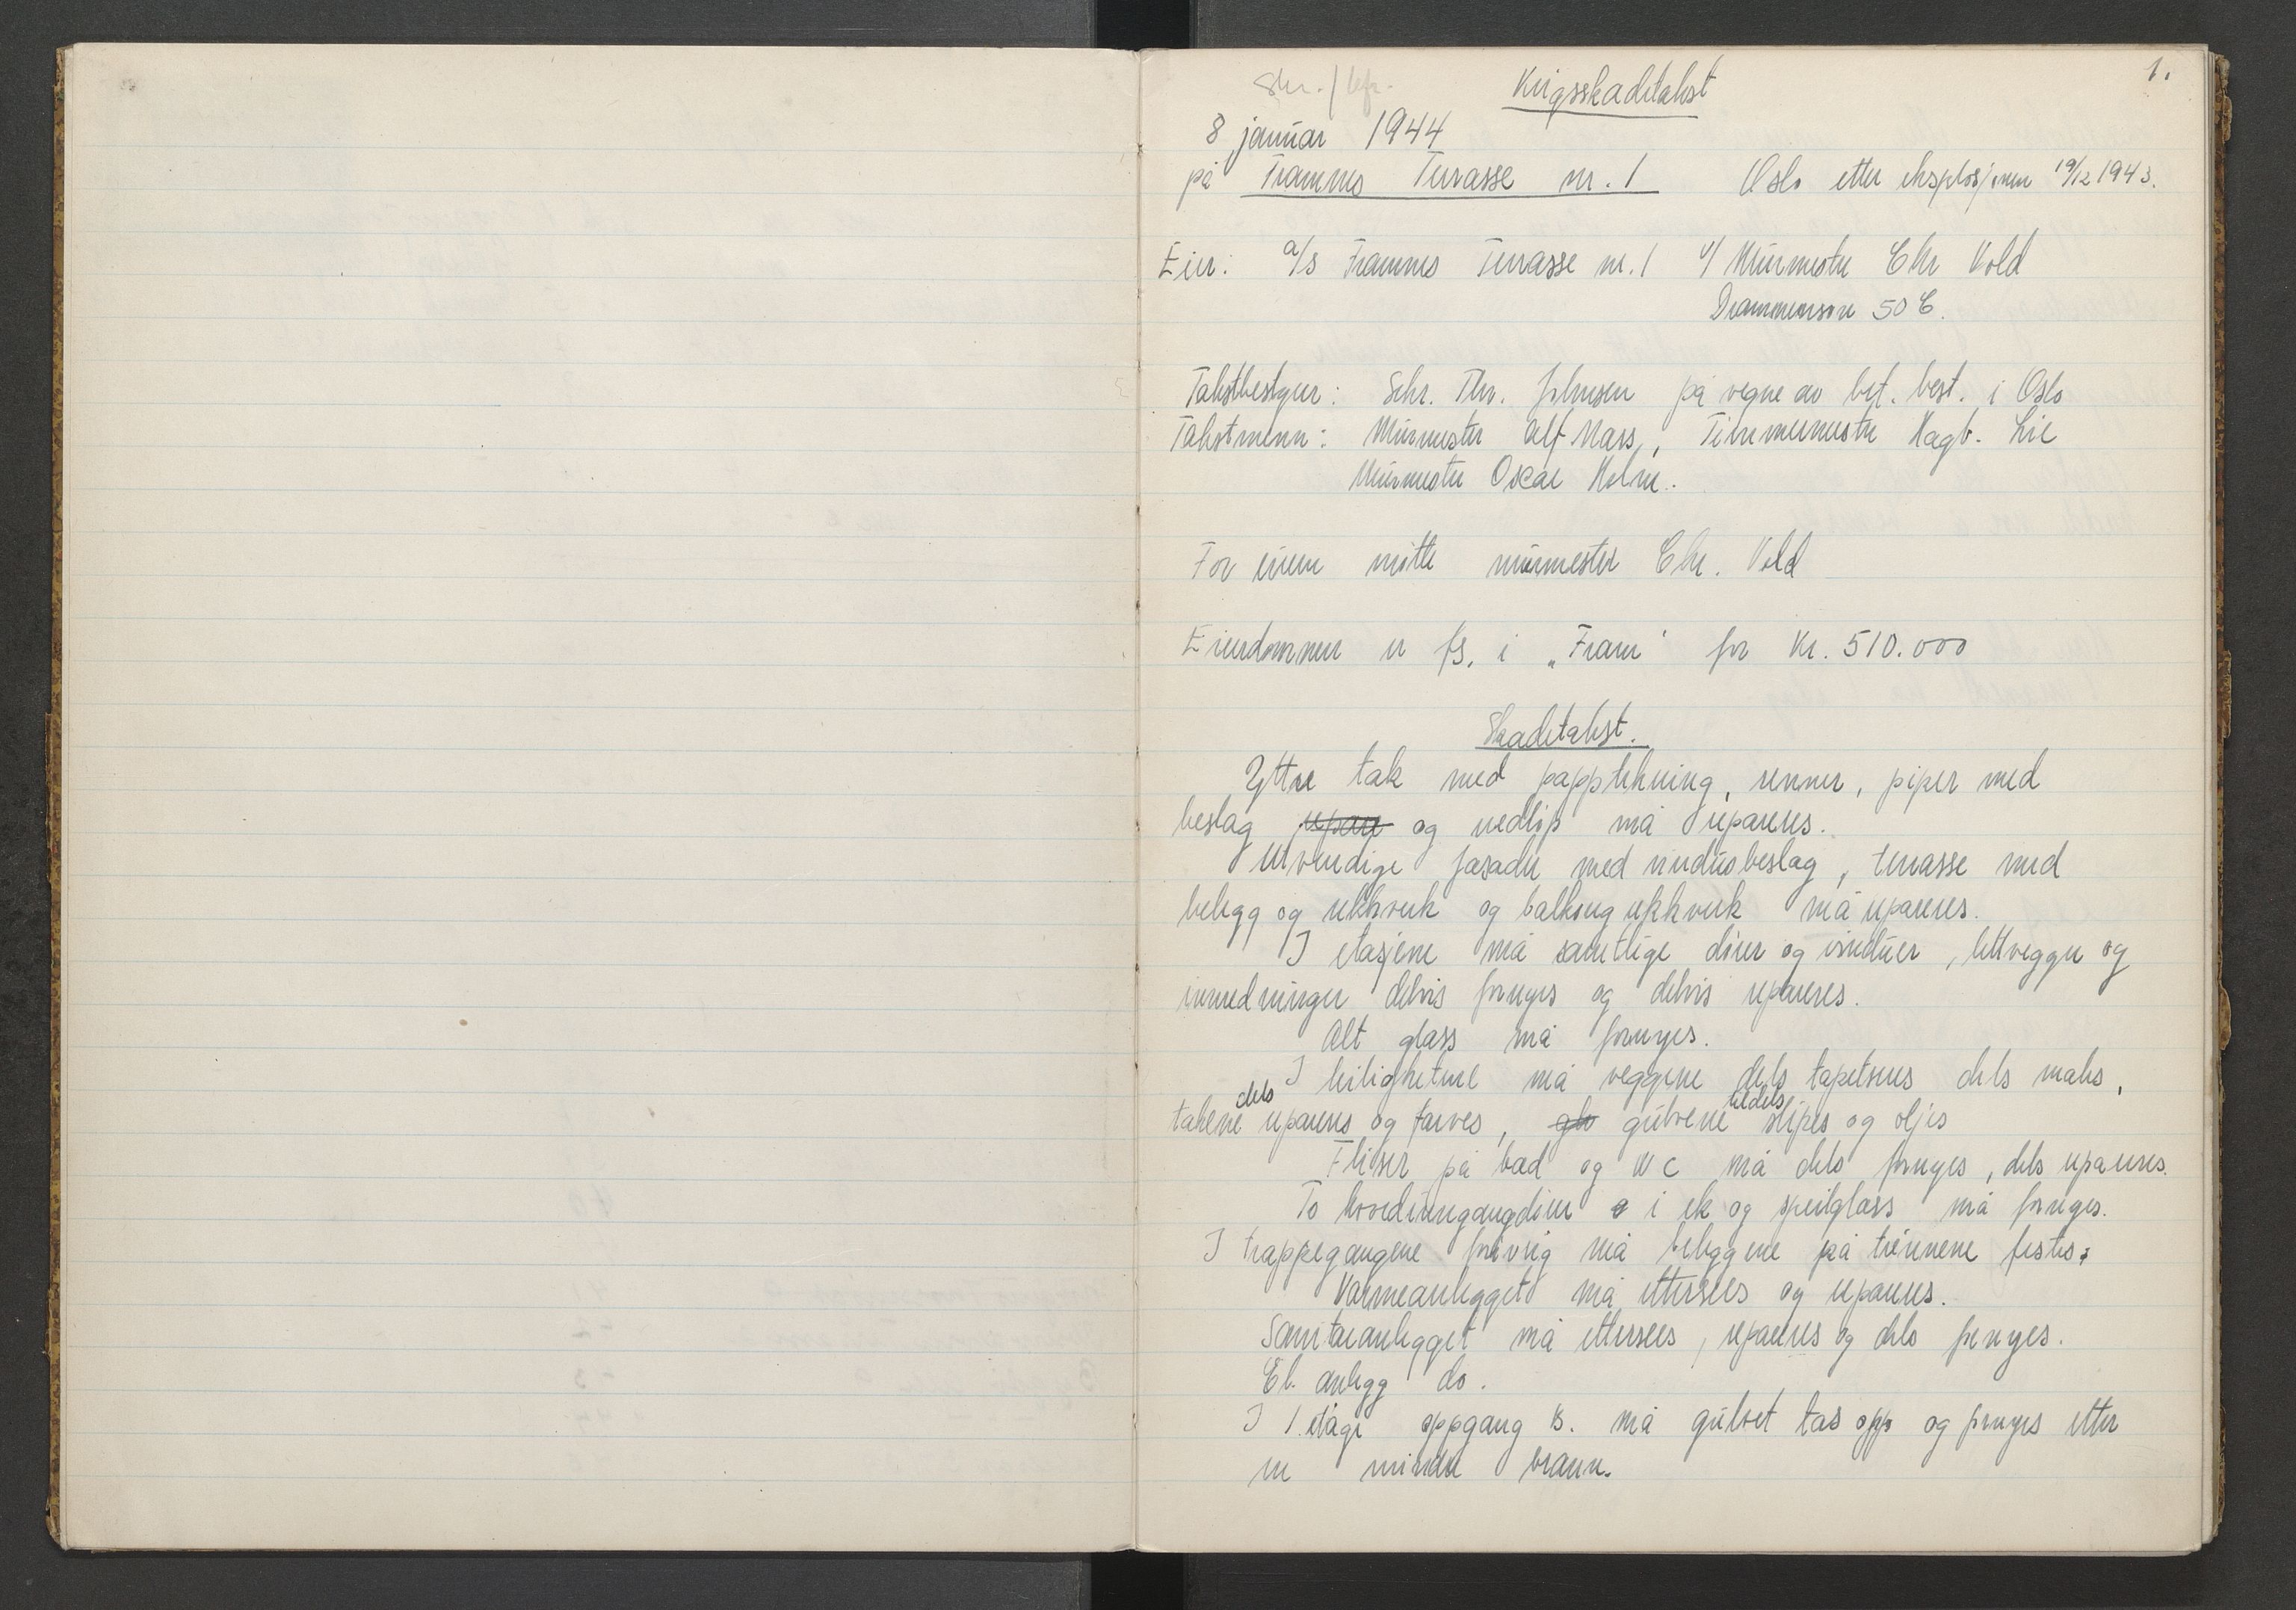 1.
Skr. / lefr.
Krigsskadetakst
8 januar 1944
på Framnes Terrasse nr. 1 Oslo etter eksplosjonen 19/12 1943.
Eier: A/S Framnes Terrasse nr. 1 v/ Murmester Chr Vold
Drammensvn 50 C.
Takstbestyrer: Sekr. Thv. Johnsen på vegne av bef. best. i Oslo
Takstmenn: Murmester Alf Nass, Tømmermester Hagb. Lie
Murmester Oscar Holm.
For eieren møtte murmester Chr. Vold
Eiendommen er fs. i "Fram" for Kr. 510.000
Skadetakst.
Yttre tak med papptekning, renner, piper med
beslag repare og nedløp må repareres.
Utvendige fasader med vindusbeslag, terrasse med
belegg og rekkverk og balkongrekkverk må repareres.
I etasjene må samtlige dører og vinduer, lettvegger og
innredninger delvis fornyes og delvis repareres.
Alt glass må fornyes.
I leilighetene må veggene dels tapetseres dels males,
takene dels repareres og farves, glv gulvene tildels slipes og oljes
Fliser på bad og WC må dels fornyes, dels repareres.
To hovedinngangdører e i ek og speilglass må fornyes.
I trappegangene forøvrig må beleggene på trinnene festes.
Varmeanlegget må ettersees og repareres.
Sanitæranlegget må ettersees, repareres og dels fornyes.
El. anlegg do.
I 1. etage oppgang B. må gulvet tas opp og fornyes etter
en mindre brann.